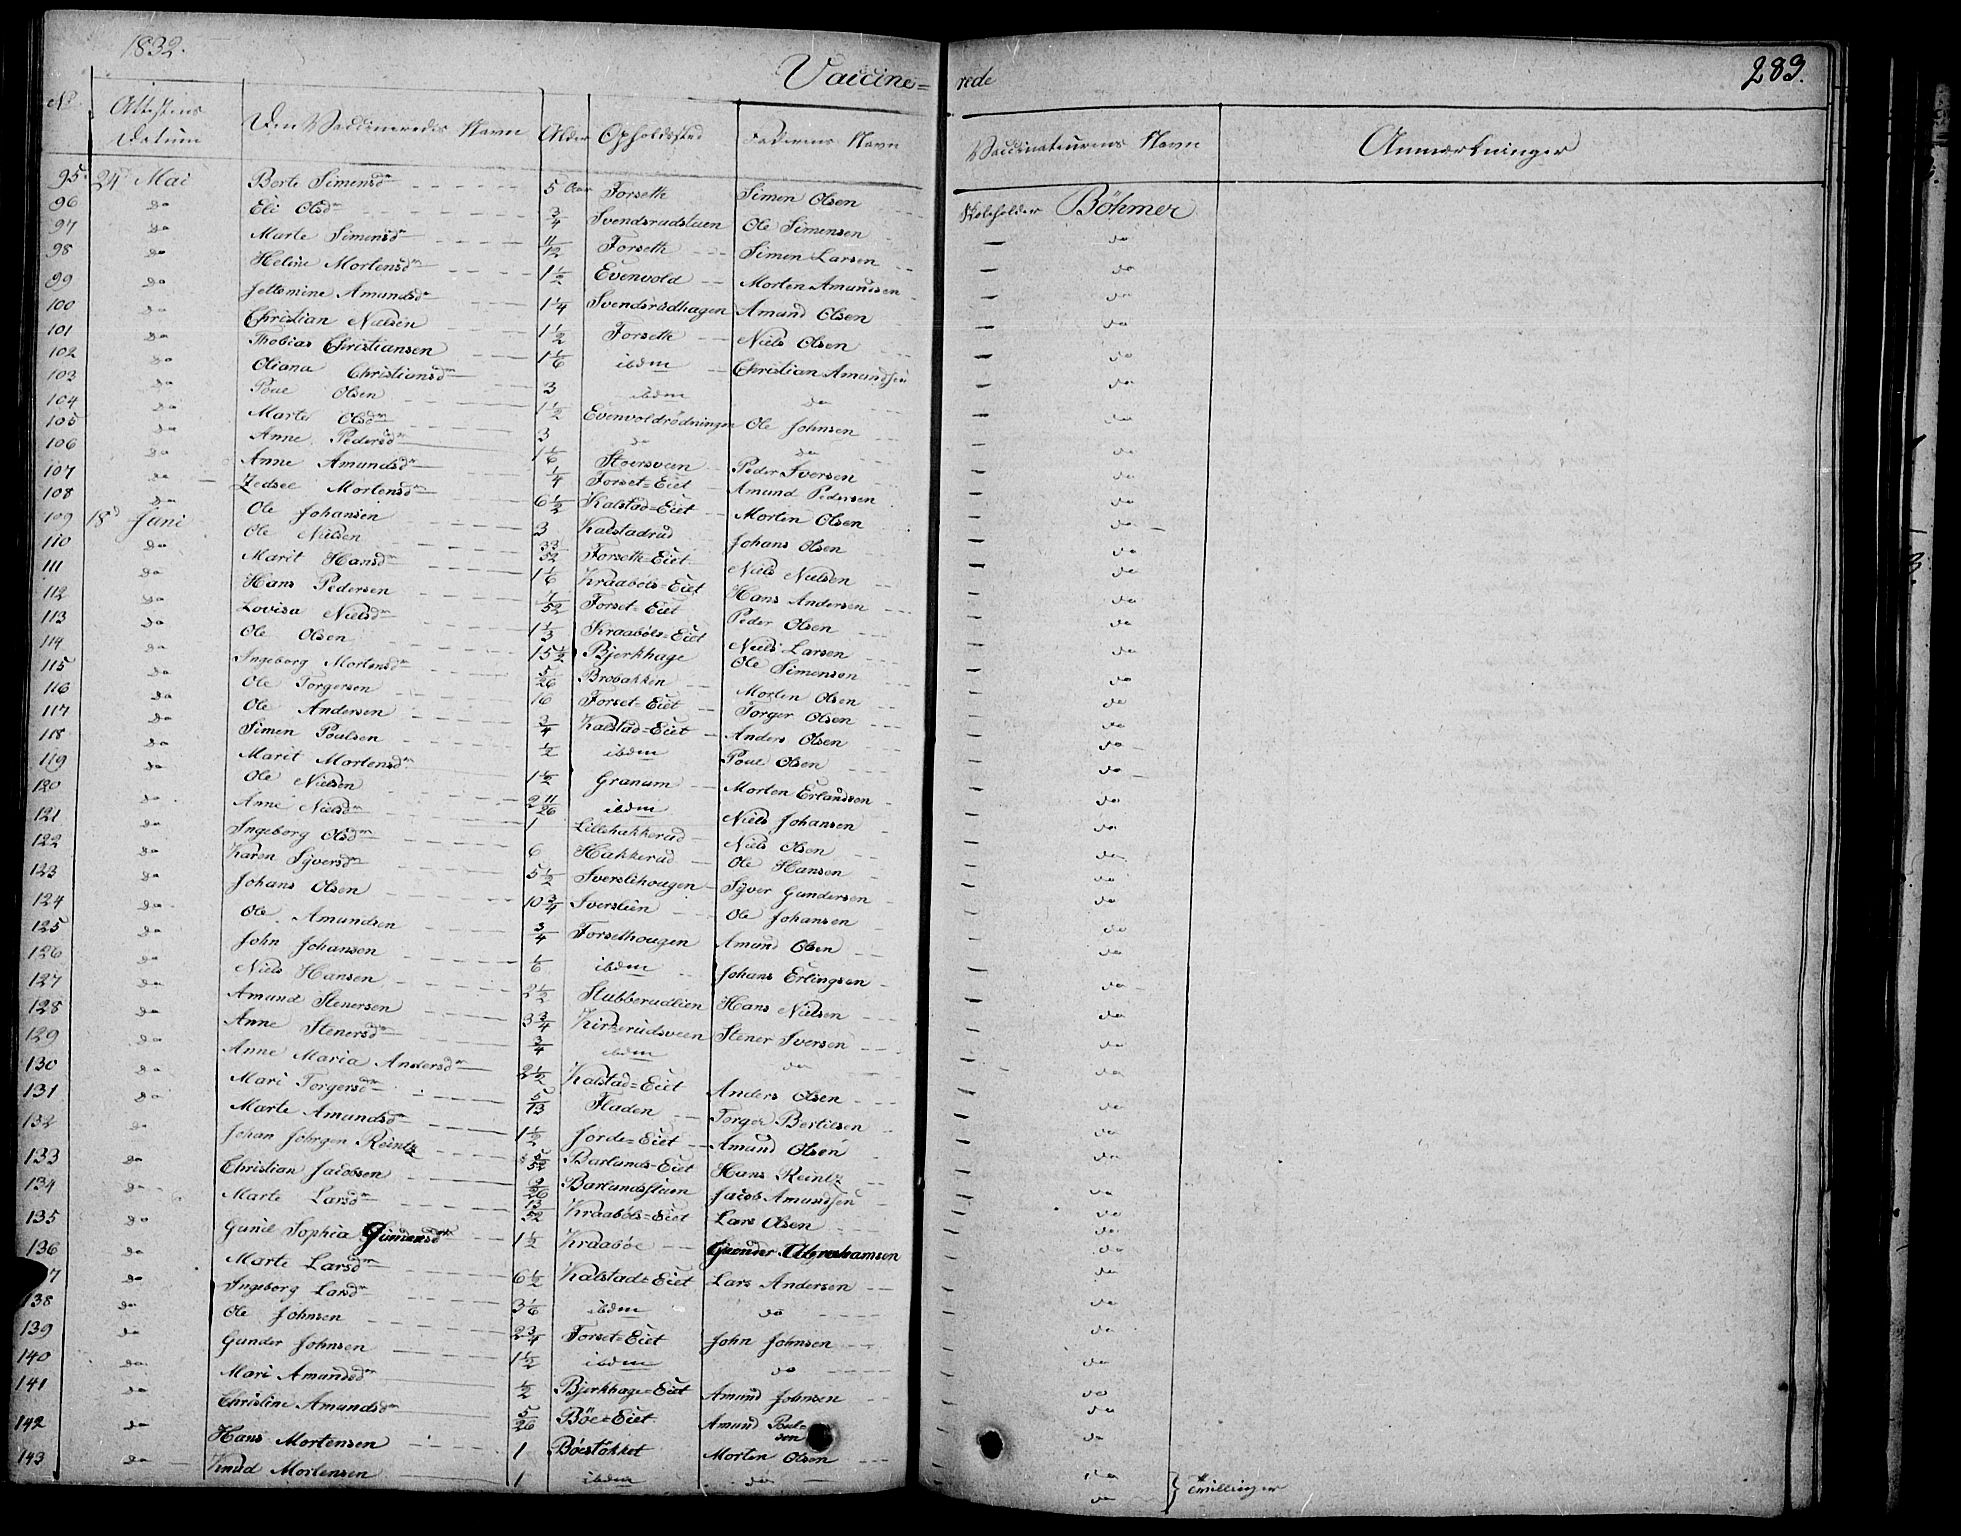 1832.
Vaccine=
rede
283.
No
Attestens Datum
Den Vaccineredes Navn
Alder
Opholdssted
Faderens Navn
Vaccinateurens Navn
Anmærkninger
95. 24d Mai Berte Simensdr 5 Aar Forseth Simen Olsen Böhmer
96 do Eli Olsdr 3/4 Svendsrudstuen Ole Simensen do
97 do Marte Simensdr 11/12 Forseth Simen Larsen do
98 do Helene Mortensdr 1 1/2 Evenvold Morten Amundsen do
99 do Jettemine Amundsdr 1 1/4 Svendsrudhagen Amund Olsen do
100 do Christian Nielsen 1 1/2 Forseth Niels Olsen do
101 do Thobias Christiansen 1 1/6 ibdm Christian Amundsen do
102 do Oliana Christiansdr 3 ibdm do do
103 do Poul Olsen 1 1/2 Evenvoldrödningen Ole Johnsen do
104 do Marte Olsdr 3 do do do
105 do Anne Pedersdr 1 1/6 Stoersveen Peder Iversen do
106 do Anne Amundsdr 1/4 Forset=Eiet Amund Pedersen do
107 do Zedsel Mortensdr 6 1/2 Kalstad=Eiet Morten Olsen do
108 do Ole Johansen 3 Kalstadrud Johans Olsen do
109 18d Juni Ole Nielsen 33/52 Forseth=Eiet Niels Nielsen do
110 do Marit Hansdr 1 1/6 Kraabøls=Eiet Hans Andersen do
111 do Hans Pedersen 7/52 Forset=Eiet Peder Olsen do
112 do Lovisa Nielsdr 1 1/3 Kraabøls=Eiet Niels Larsen do
113 do Ole Olsen 15 1/2 Bjerkhage Ole Simensen do
114 do Ingeborg Mortensdr 5/26 Brobakken Morten Olsen do
115 do Ole Torgersen 16 Forset=Eiet Torger Olsen do
116 do Ole Andersen 3/4 Kalstad=Eiet Anders Olsen do
117 do Simen Poulsen 1/2 ibdm Poul Olsen do
118 do Marit Mortensdr 1 1/2 Granum Morten Erlandsen do
119 do Ole Nielsen 2 11/26 ibdm Niels Johansen do
120 do Anne Nielsdr 1 Lillehakkerud Niels Olsen do
121 do Ingeborg Olsdr 6 Hakkerud Ole Hansen do
122 do Karen Syversdr 5 1/2 Iverslihougen Syver Gundersen do
123 do Johans Olsen 10 3/4 Iverslien Ole Johansen do
124 do Ole Amundsen 3/4 Forsethougen Amund Olsen do
125 do John Johansen 1/6 ibdm Johans Erlingsen do
126 do Niels Hansen 2 1/2 Stubberudlien Hans Nielsen do
127 do Amund Stenersen 3 3/4 Kirkerudsveen Stener Iversen do
128 do Anne Stenersdr 3/4 ibdm do do
129 do Anne Maria Andersdr 2 1/2 Kalstad=Eiet Anders Olsen do
130 do Mari Torgersdr 5/13 Fladen Torger Bertelsen do
131 do Marte Amundsdr 1 1/2 Jorde=Eiet Amund Olsen do
132 do Johan Jöhrgen Reintz 5/52 Barlunds=Eiet Hans Reintz do
133 do Christian Jacobsen 9/26 Barlundsstuen Jacob Amundsen do
134 do Marte Larsdr 13/52 Kraabøls=Eiet Lars Olsen do
135 do Gunil Sophia Gundersdr 1 1/2 Kraabøe Gunder Abrahamsen do
136 do Marte Larsdr 6 1/2 Kalstad=Eiet Lars Andersen do
7 do Ingeborg Larsdr 3 1/6 ibdm do do
138 do Ole Johnsen 2 3/4 Forset=Eiet John Johnsen do
139 do Gunder Johnsen 1 1/2 ibdm do do
140 do Mari Amundsdr 1/2 Bjerkhage=Eiet Amund Johnsen do
141 do Christine Amundsdr 5/26 Böe=Eiet Amund Poulsen do
142 do Hans Mortensen 1 Böestökket Morten Olsen do
143 do Knud Mortensen 1 ibdm do do } Tvillinger